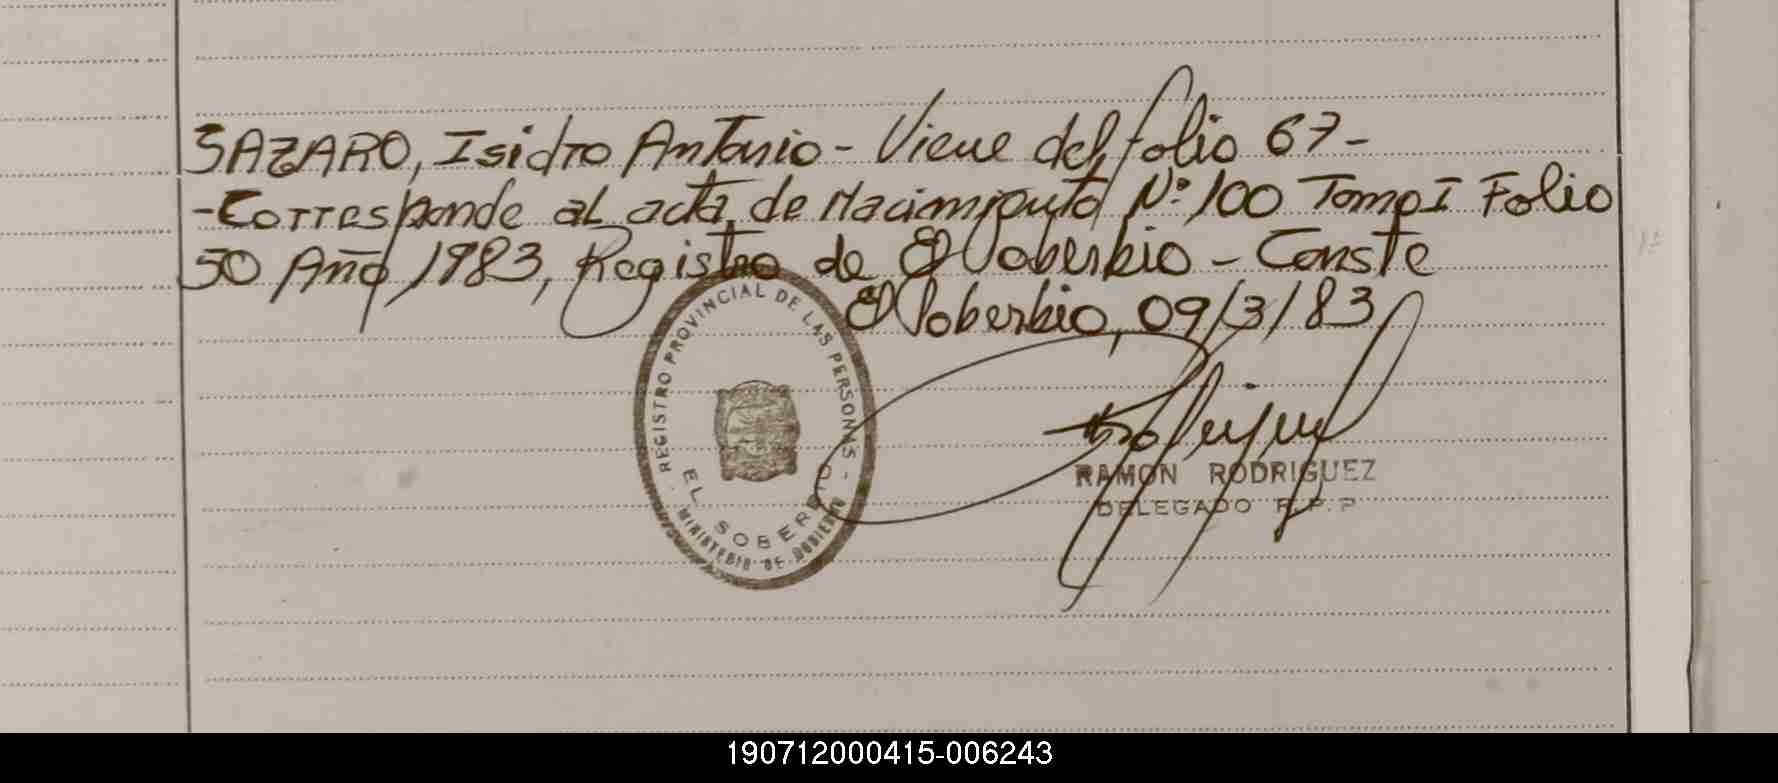 SAZARO, Isidro Antonio - Viene del folio 67 -
- Corresponde al acta de Nacimiento Nº 100 Tomo I Folio
50 Año 1983, Registro de El Soberbio - Conste
El Soberbio, 09/3/83
REGISTRO PROVINCIAL DE LAS PERSONAS -
EL SOBERBIO
MINISTERIO DE GOBIERNO
RAMON RODRIGUEZ
DELEGADO R.P.P
190712000415-006243